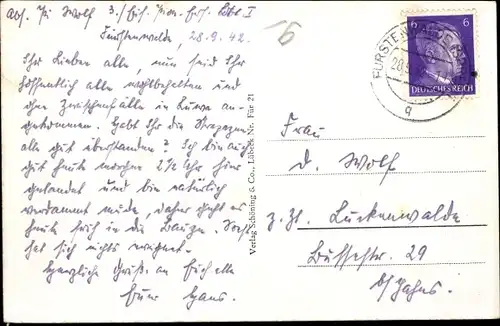 Abs. Pi Wolf 3./Eis. Pion. Ers. Batl. I
Fürstenwalde, 28.9.42.
Ihr Lieben alle, nun seid Ihr
hoffentlich alle wohlbehalten und
ohne Zwischenfälle in Luwa an-
gekommen. Habt Ihr die Strapazen
alle gut überstanden? Ich bin auch
gut heute morgen 2½ Uhr hier
gelandet und bin natürlich
verdammt müde, daher geht es
heute früh in die Bauze. Sonst
hat sich nichts ereignet.
Herzliche Grüße an Euch alle
Euer Hans.
Verlag Schöning & Co., Lübeck No. Für 21
6
FÜRSTENWALDE
6 6
DEUTSCHES REICH
q
Frau
D. Wolf
z. Zt. Luckenwalde
Bussestr. 29
b/ Jahns.